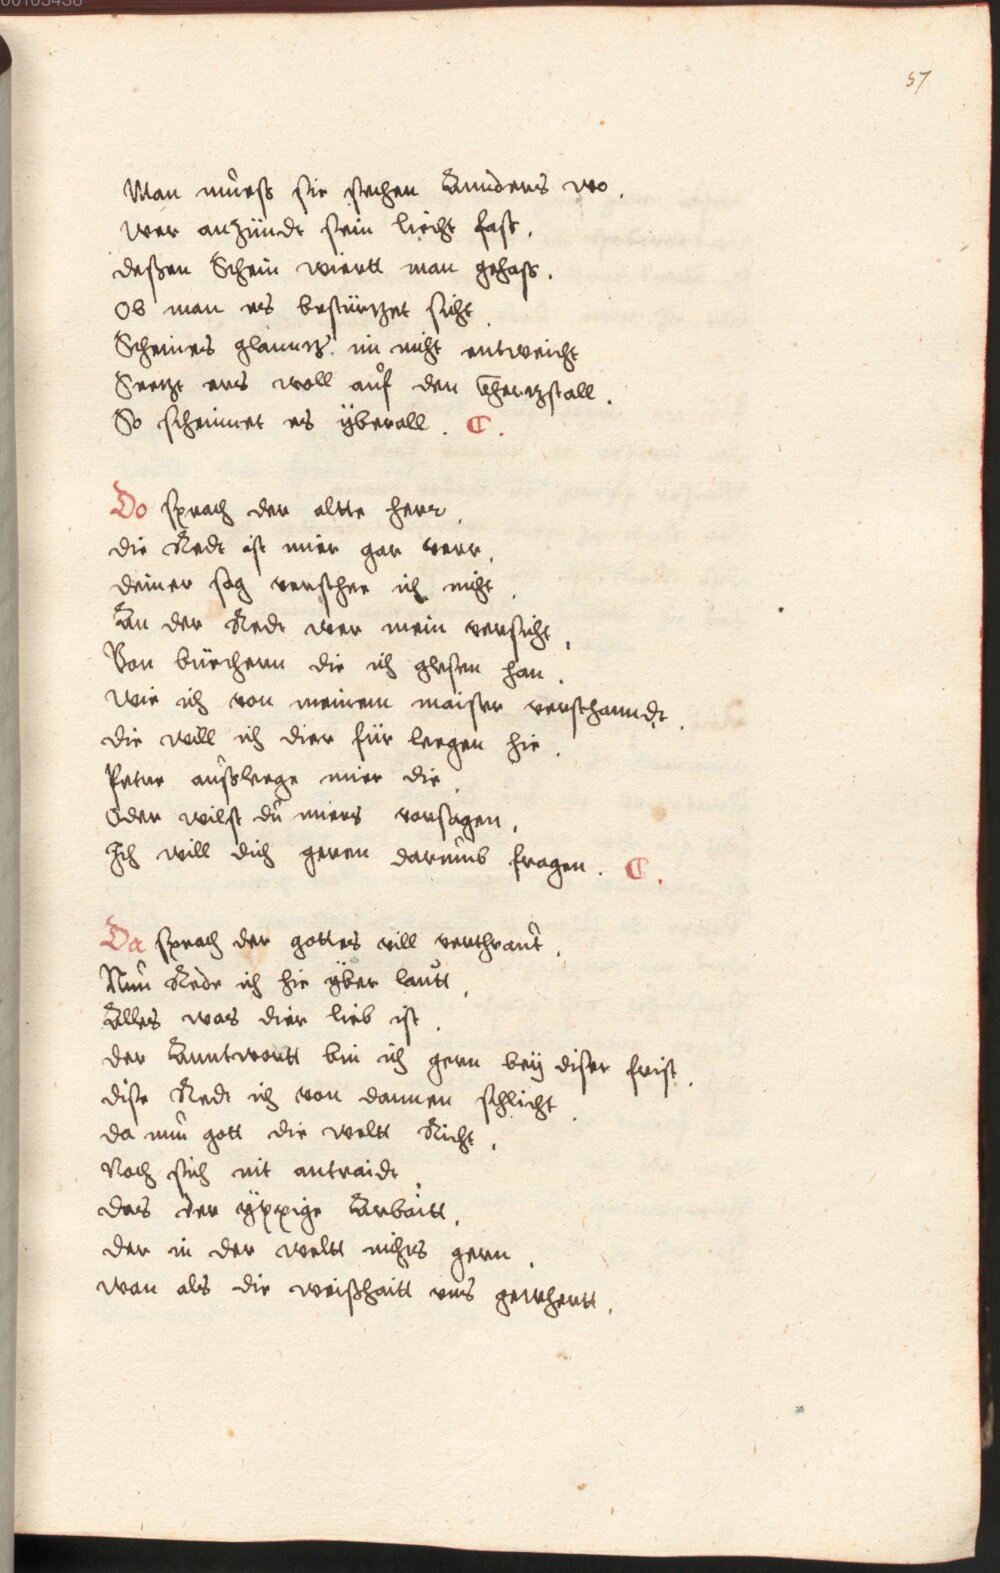 57
Man muess sie suchen Annders wo.
Wer anzündt sein liecht fast.
dessen Schein wiertt man gehass.
Ob man es bestürtzet sicht
Scheines glanntz im nicht entweicht
Seetzt ers woll auf den
So scheinnet es überall. C.
Do sprach der altte herr.
die Redt ist mier gar verr.
deiner sag verstehe ich nicht.
An der Redt wer mein versicht.
Von büechern die ich glesen han.
wie ich von meinem maister verstanndt.
die will ich dier für leegen hie.
Peter aussleege mier die.
Oder wilst du miers vorsagen.
Ich will dich geren darumb fragen. C.
Da sprach der gottes vill verthraut.
Nun Rede ich hie über lautt.
Alles was dier lieb ist.
der Anntwortt bin ich gern bey diser frist.
dise Redt ich von dannen schlicht.
da nun gott die weltt Richt.
Noch sich nit antraidt.
das der üppige Arbaitt.
der in der weltt nichts gern.
wan als die weisshaitt uns